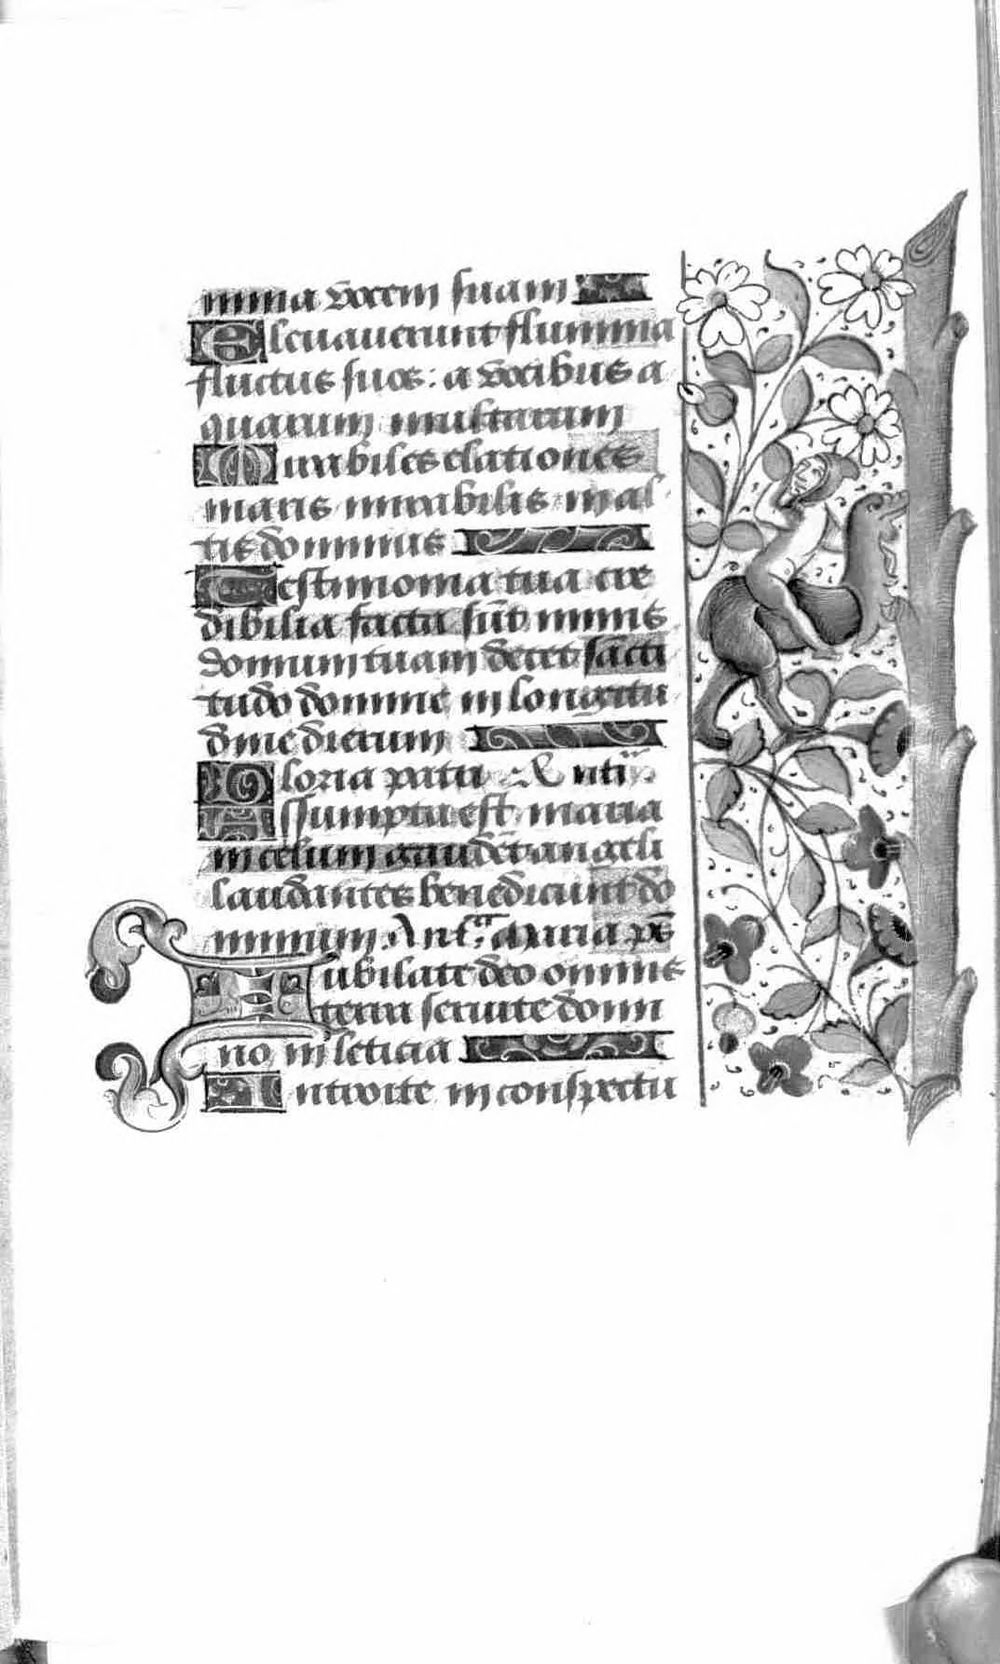 mina vocem suam
Elevaverunt flumina
fluctus suos: a vocibus a
quarum multarum
Mirabiles elationes
maris mirabilis in al
tis dominus
Testimonia tua cre
dibilia facta sūt nimis
domum tuam decet sācti
tudo domine in longitu
dine dierum
Gloria patri Et uti
Assumpta est maria
in celum gaudēt angeli
laudantes benedicunt do
minum. Ant. Maria
Iubilate deo omnis
terra servite domi
no in leticia
Introite in conspectu